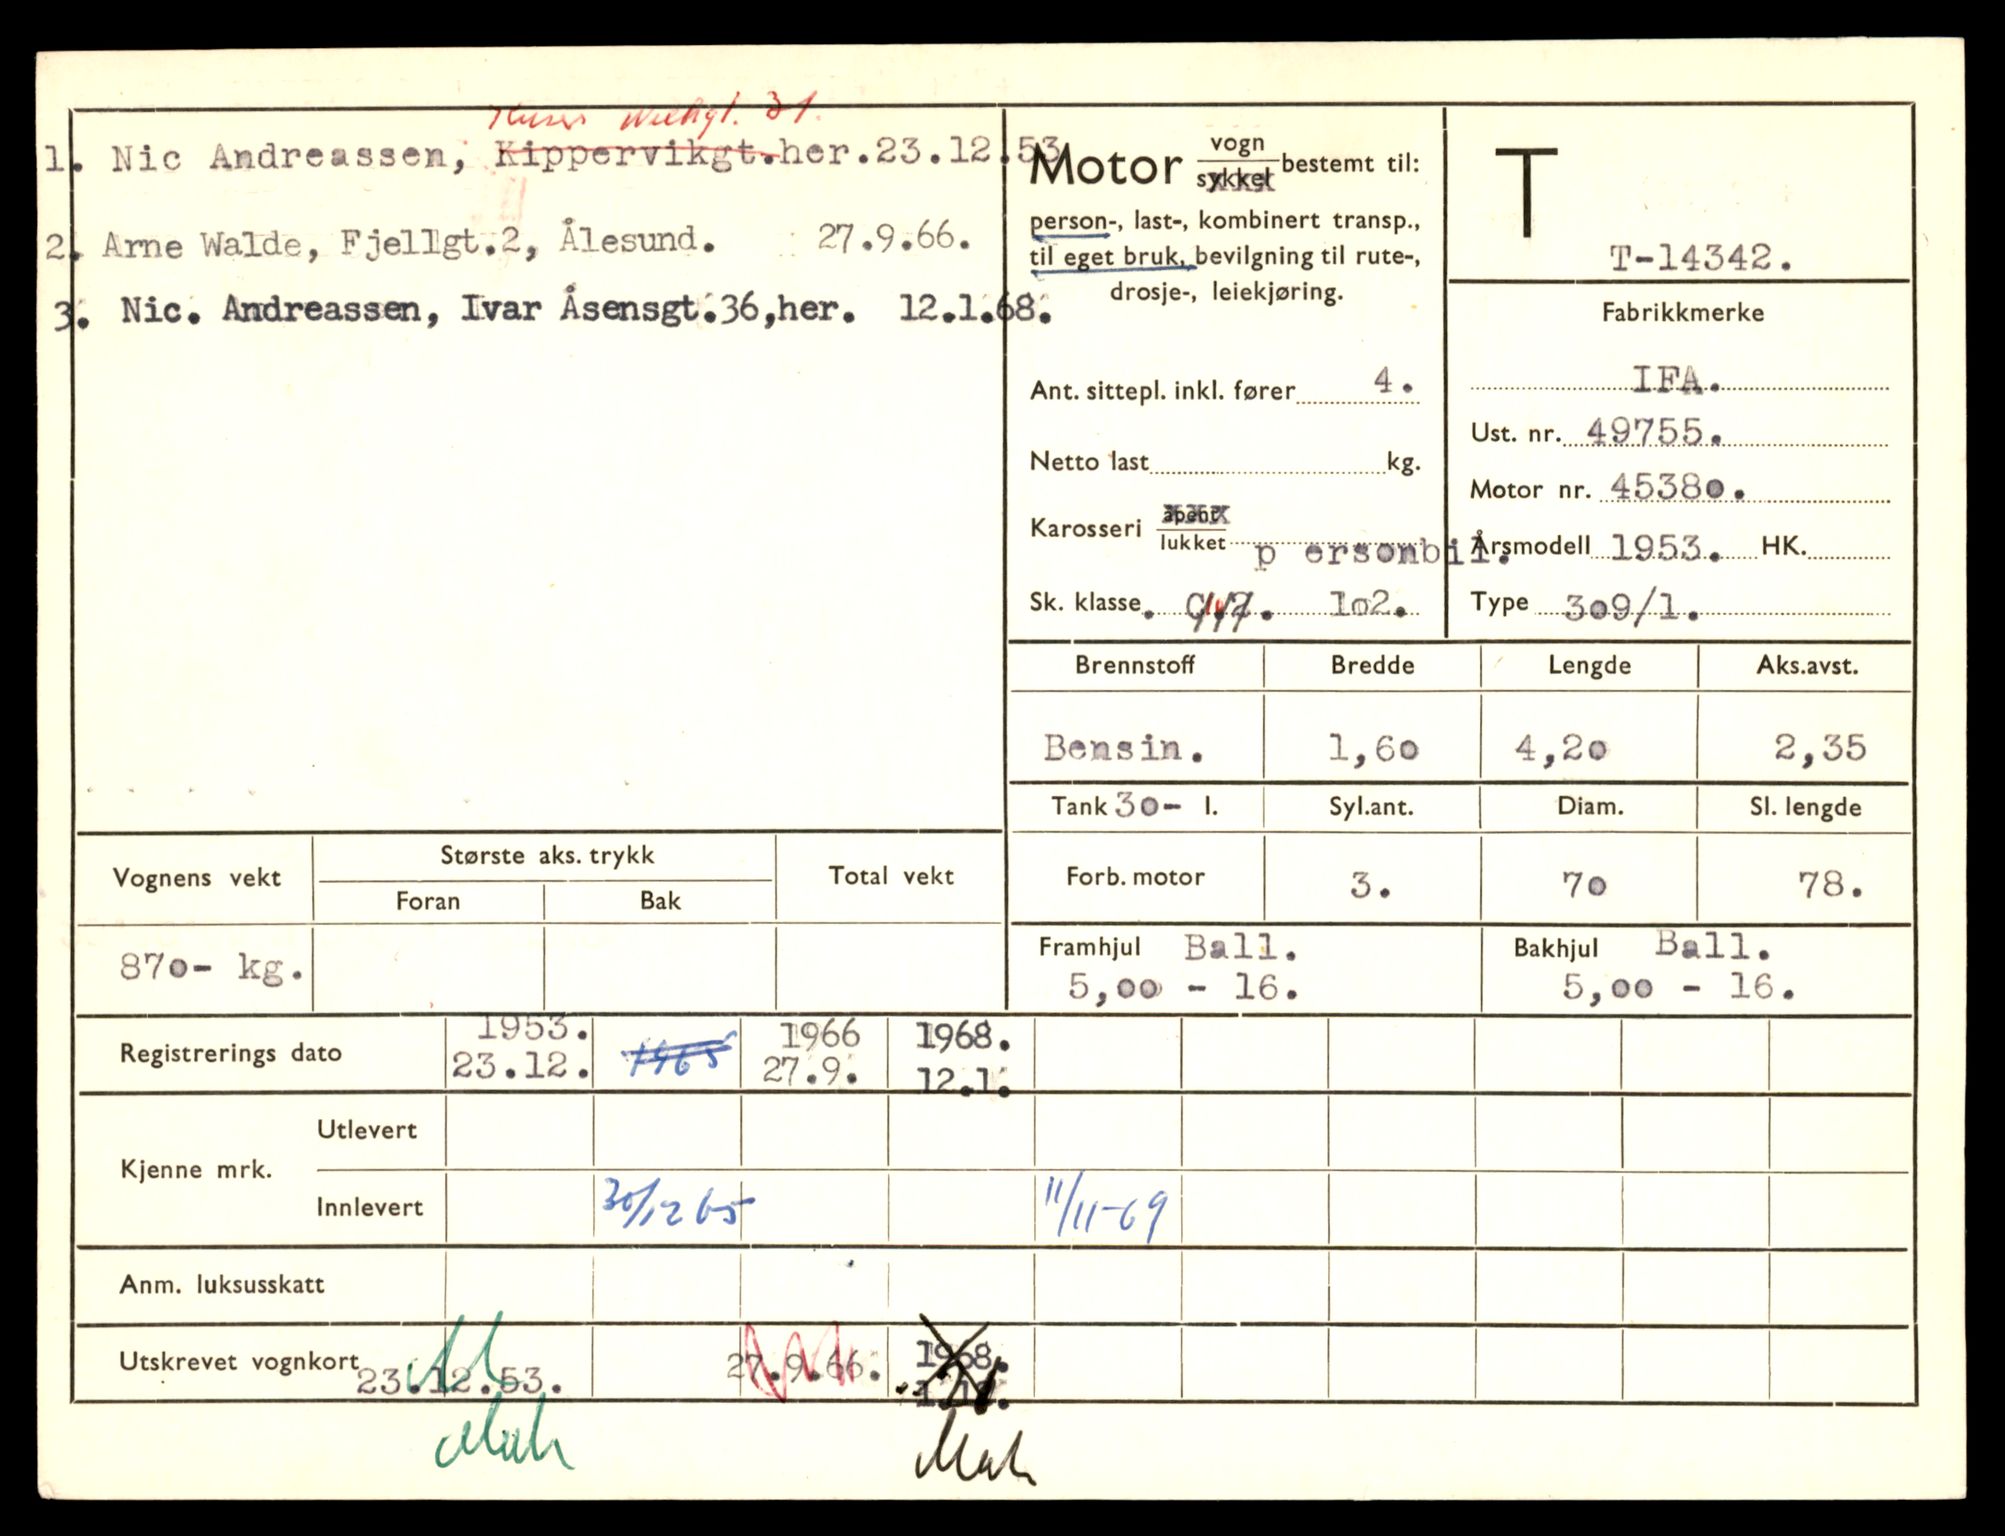 31.
1. Nic Andreassen, Kippervikgt.her.23.12.53
2. Arne Walde, Fjellgt.2, Ålesund. 27.9.66.
3. Nic. Andreassen, Ivar Åsensgt.36,her. 12.1.68.
Motor vogn/sykkel bestemt til:
person-, last-, kombinert transp.,
til eget bruk, bevilgning til rute-,
drosje-, leiekjøring.
Ant. sittepl. inkl. fører 4.
Netto last kg.
Karosseri åpent/lukket personbil.
Sk. klasse. 102.
T
T-14342.
Fabrikkmerke
IFA.
Ust. nr. 49755.
Motor nr. 45380.
Årsmodell 1953. HK.
Type 309/1.
Brennstoff Bredde Lengde Aks.avst.
Bensin. 1,60 4,20 2,35
Tank 30- l. Syl.ant. Diam. Sl. lengde
Forb. motor 3. 70 78.
Framhjul Ball. Bakhjul Ball.
5,00 - 16. 5,00 - 16.
Vognens vekt Største aks. trykk Total vekt
Foran Bak
870- kg.
Registrerings dato 1953. 1965 1966 1968.
23.12. 27.9. 12.1.
Kjenne mrk. Utlevert
Innlevert 30/12 65 11/11-69
Anm. luksusskatt
Utskrevet vognkort 23.12.53. 27.9.66. 1968.